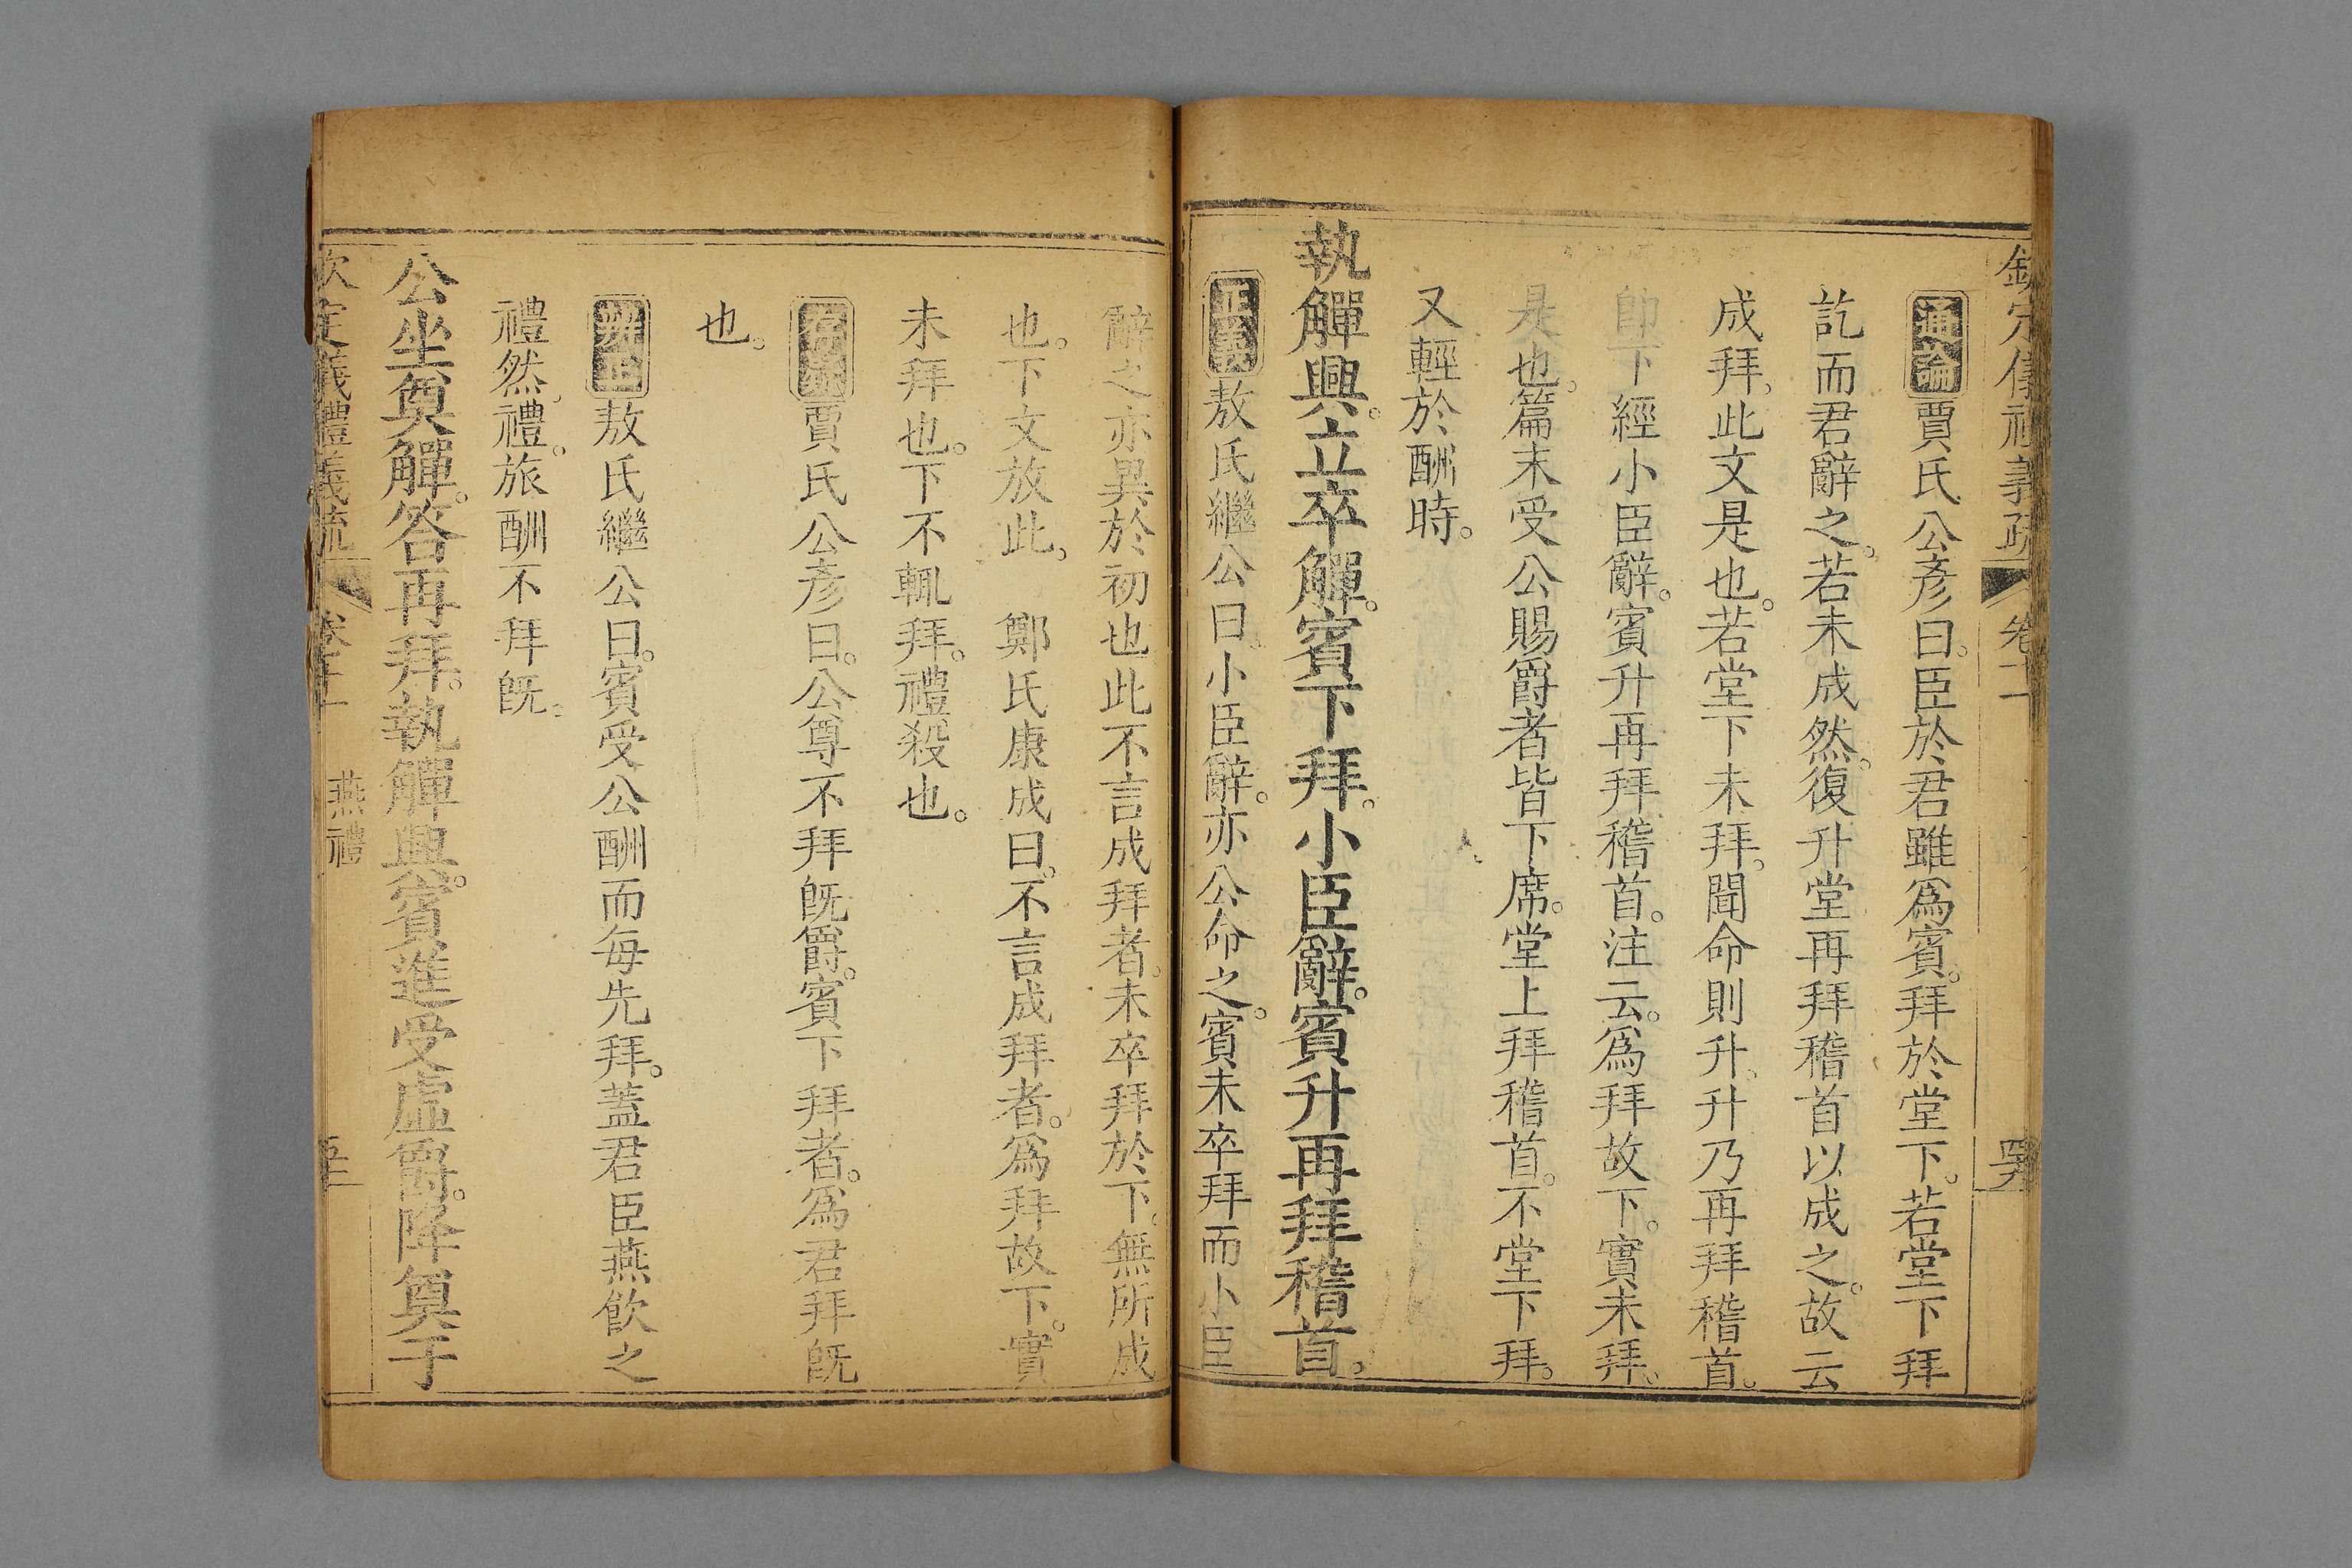 欽定儀禮義疏 卷十一
通論賈氏公彥曰。臣於君雖爲賓。拜於堂下。若堂下拜
訖而君辭之。若未成然。復升堂再拜稽首以成之。故云
成拜。此文是也。若堂下未拜。聞命則升。升乃再拜稽首。
卽下經小臣辭。賓升再拜稽首。注云。爲拜故下。實未拜。
是也。篇末受公賜爵者皆下席。堂上拜稽首。不堂下拜。
又輕於酬時。
執觶興。立卒觶。賓下拜。小臣辭。賓升再拜稽首。
正義敖氏繼公曰。小臣辭。亦公命之。賓未卒拜而小臣
辭之亦異於初也此不言成拜者。未卒拜於下。無所成
也。下文放此。 鄭氏康成曰。不言成拜者。爲拜故下。實
未拜也。下不輒拜。禮殺也。
存疑賈氏公彥曰。公尊不拜旣爵。賓下拜者。爲君拜旣
也。
辨正敖氏繼公曰。賓受公酬而每先拜。蓋君臣燕飲之
禮然。禮。旅酬不拜旣。
公坐奠觶。答再拜。執觶興。賓進受虛爵。降奠于
欽定儀禮義疏 卷十一 燕禮